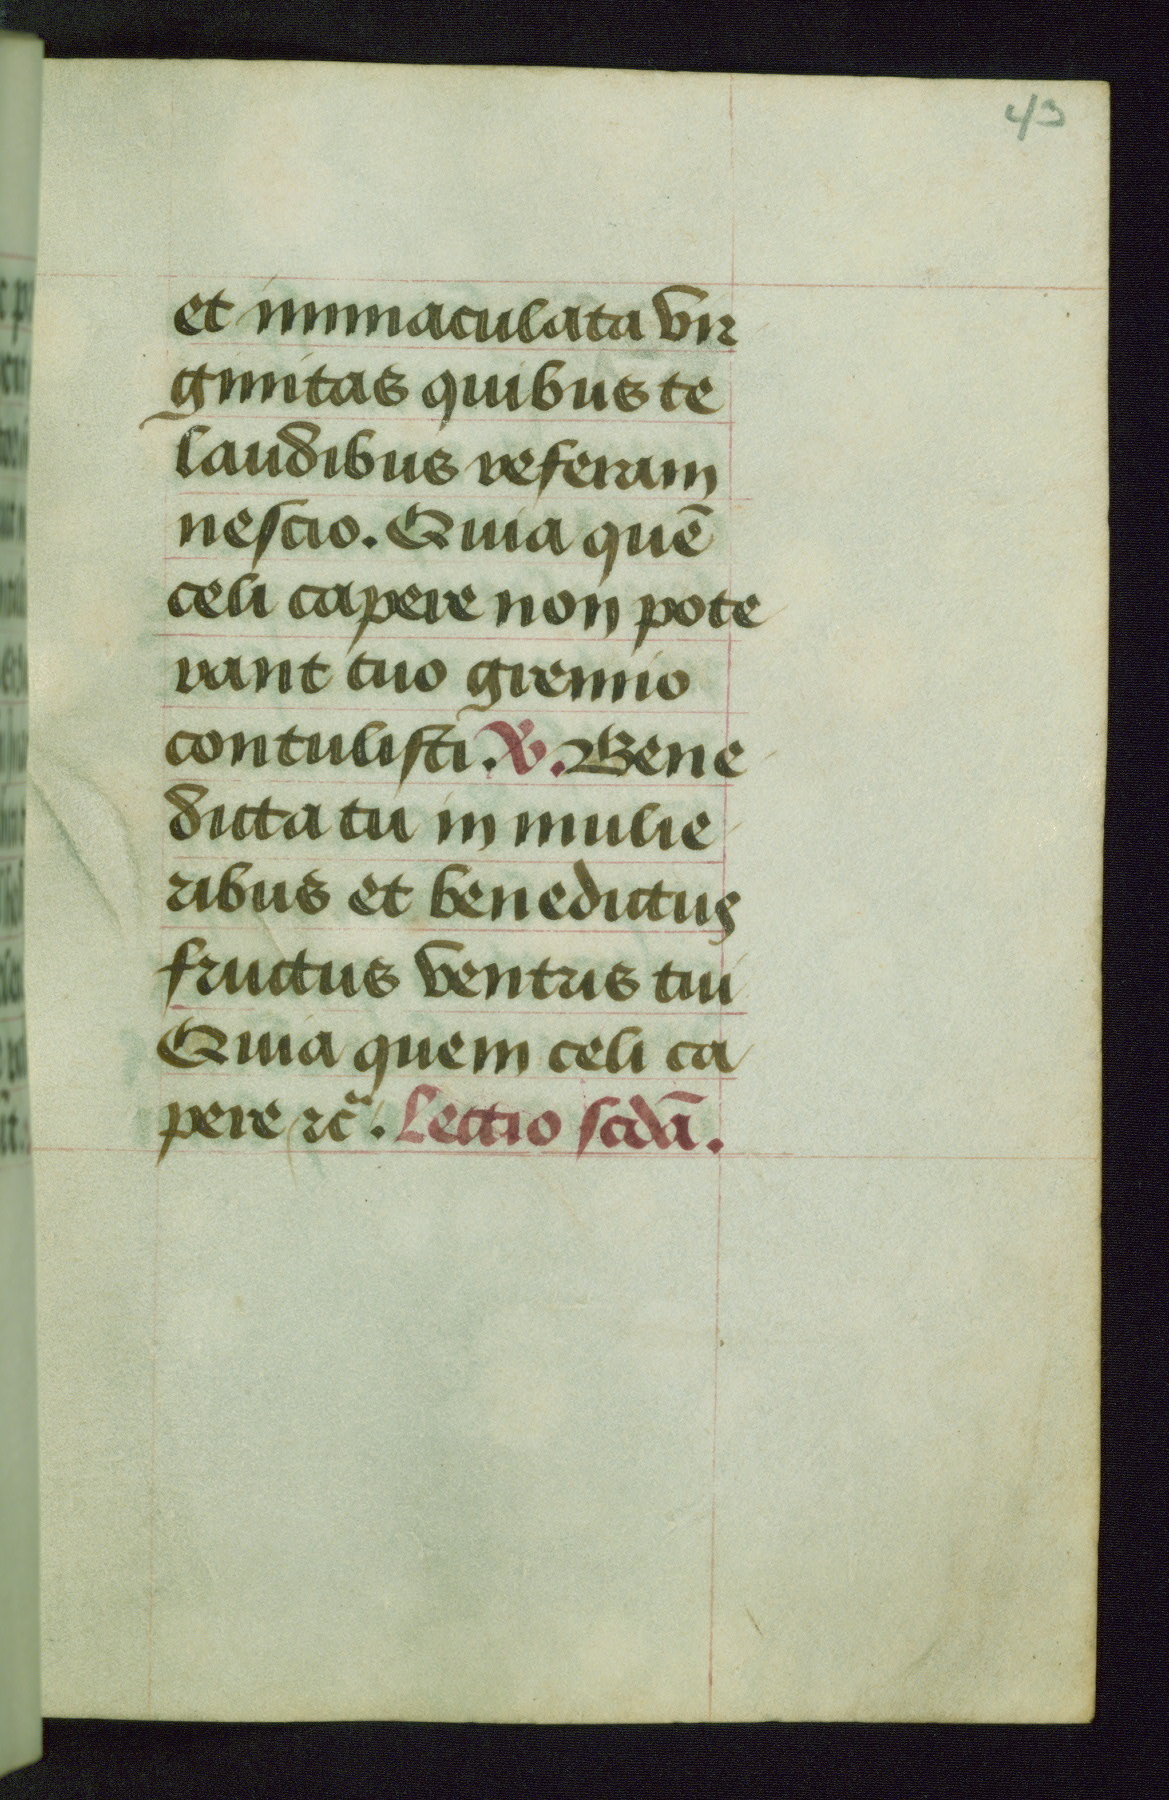 43
et immaculata vir
ginitas quibus te
laudibus referam
nescio. Quia quē
celi capere non pote
rant tuo gremio
contulisti. ℣. Bene
dicta tu in mulie
ribus et benedictus
fructus ventris tui
Quia quem celi ca
pere ⁊c̃. Lectio scdā.